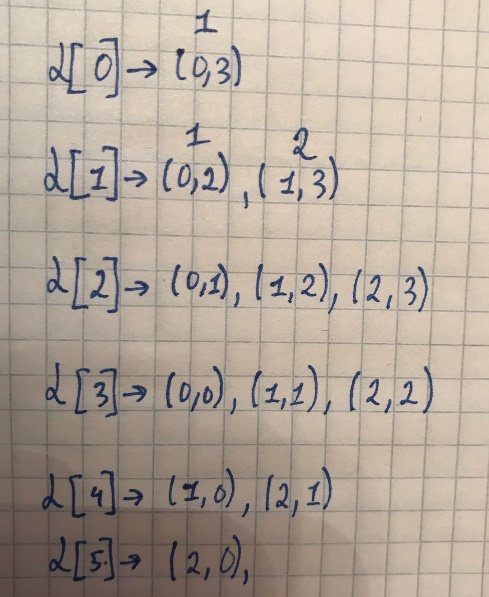 1
d[0]→(0,3)
1 2
d[1]→(0,2),(1,3)
d[2]→(0,1),(1,2),(2,3)
d[3]→(0,0),(1,1),(2,2)
d[4]→(1,0),(2,1)
d[5]→(2,0),